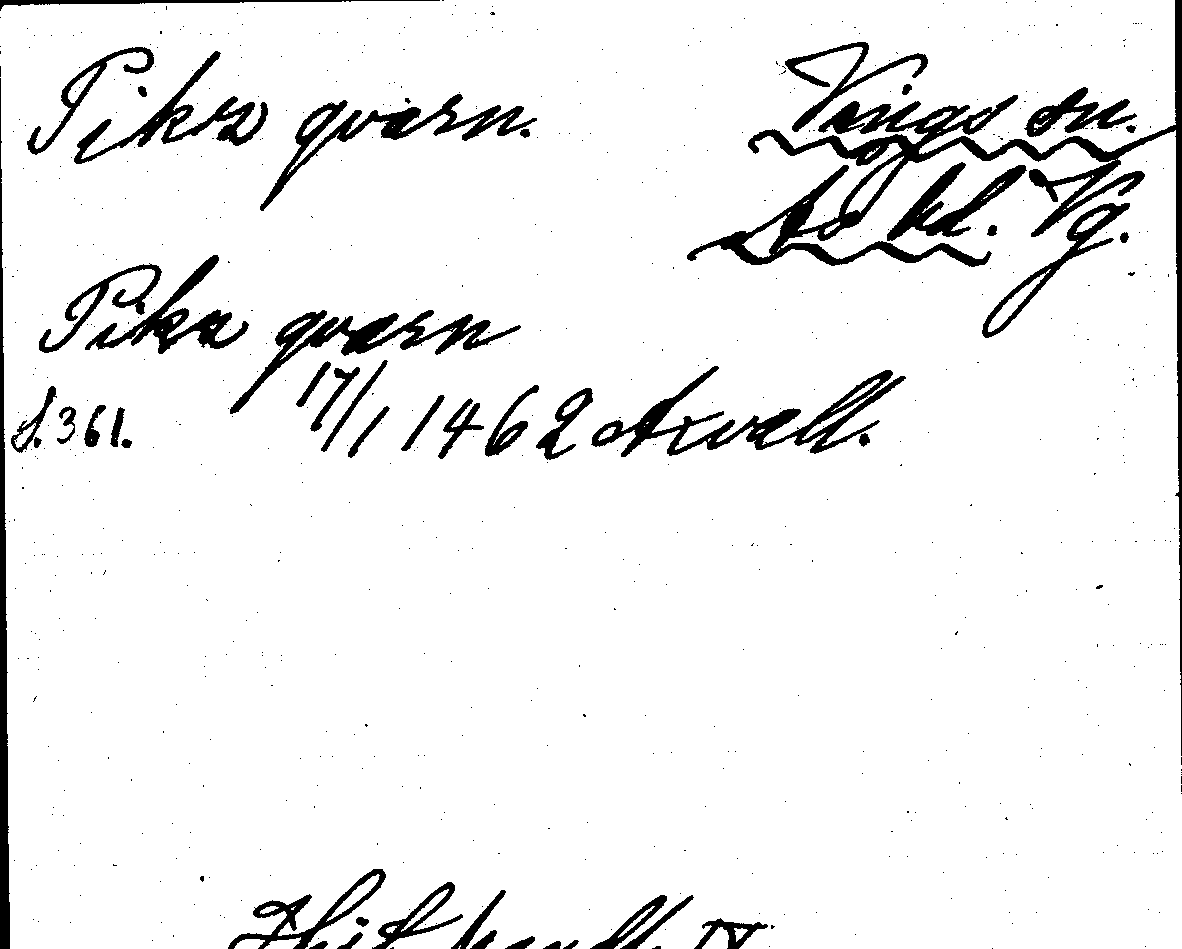 Pikra qvarn.
Vings sn.
Ås hd. Vg.
Pika qvarn
s. 361. 17/1 1462 Axvall.
handl. IV